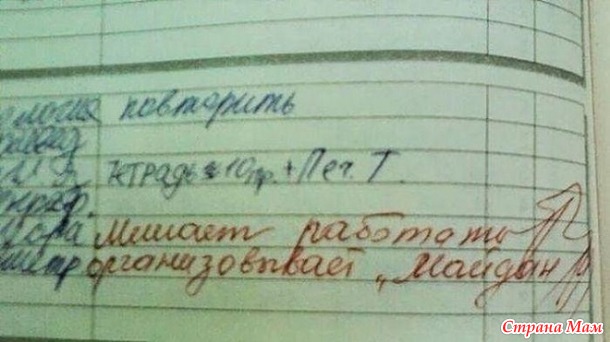 повторить
тетрадь 10пр. + Печ. Т.
Мешает работать
организовывает „Майдан"
Страна Мам